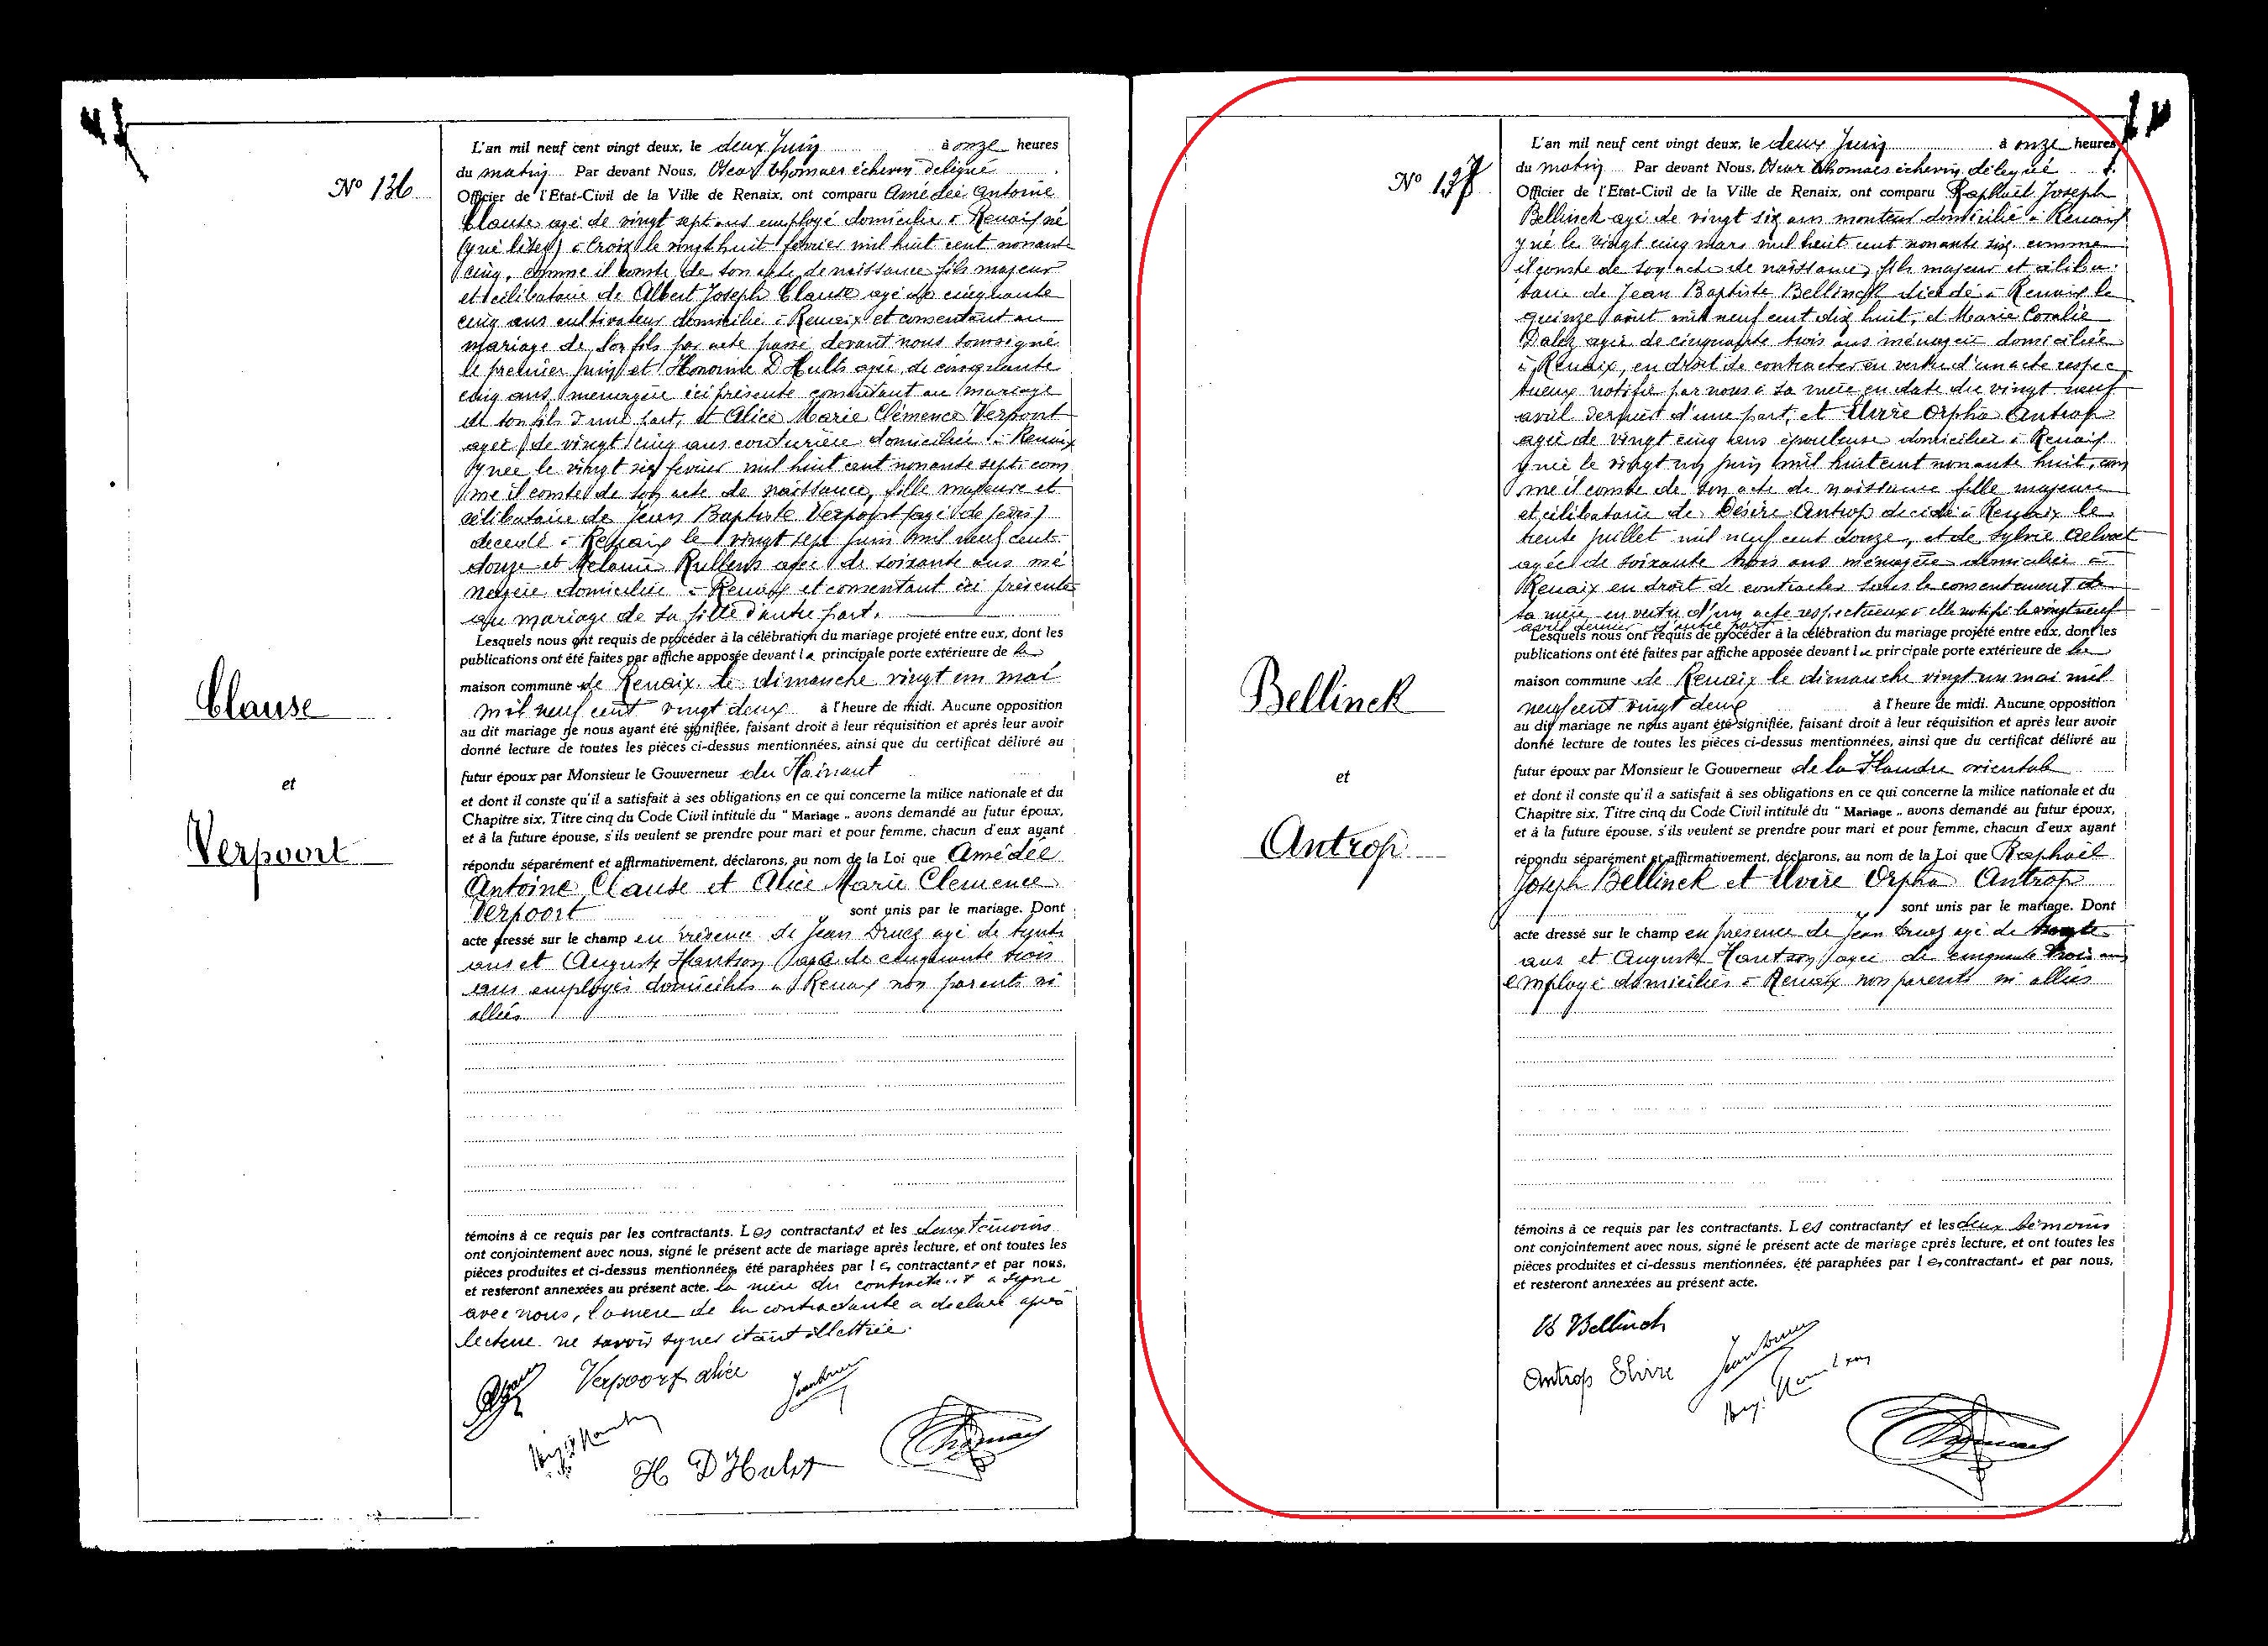 Nº 136
Clause
et
Verpoort
L'an mil neuf cent vingt deux, le deux Juin à onze heures
du matin Par devant Nous, Oscar Thomaes échevin délégué
Officier de l'Etat-Civil de la Ville de Renaix, ont comparu Amédée Antoine
Clause agé de vingt sept ans employé domicilié à Renaix né
à Croix le vingt huit fevrier mil huit cent nonante
cinq, comme il conste de son acte de naissance fils majeur
et célibataire de Albert Joseph Clause agé de cinquante
cinq ans cultivateur domicilié à Renaix et consentant au
mariage de son fils par acte passé devant nous soussigné
le premier juin et Honorine D'Hulst agée de cinquante
cinq ans, menagère ici présente consentant au mariage
de son fils d'une part, et Alice Marie Clémence Verpoort
agée de vingt cinq ans couturière domiciliée à Renaix
y née le vingt six fevrier mil huit cent nonante sept, com
me il conste de son acte de naissance, fille majeure et
célibataire de Jean Baptiste Verpoort
decedé à Renaix le vingt sept juin mil neuf cent
douze et Mélanie Rullens agée de soixante ans mé
nagère domiciliée à Renaix et consentant ici présente
au mariage de sa fille d'autre part.
Lesquels nous ont requis de procéder à la célébration du mariage projeté entre eux, dont les
publications ont été faites par affiche apposée devant la principale porte extérieure de la
maison commune de Renaix le dimanche vingt un mai
mil neuf cent vingt deux à l'heure de midi. Aucune opposition
au dit mariage ne nous ayant été signifiée, faisant droit à leur réquisition et après leur avoir
donné lecture de toutes les pièces ci-dessus mentionnées, ainsi que du certificat délivré au
futur époux par Monsieur le Gouverneur du Hainaut
et dont il conste qu'il a satisfait à ses obligations en ce qui concerne la milice nationale et du
Chapitre six, Titre cinq du Code Civil intitulé du " Mariage „ avons demandé au futur époux,
et à la future épouse, s'ils veulent se prendre pour mari et pour femme, chacun d'eux ayant
répondu séparément et affirmativement, déclarons, au nom de la Loi que Amédée
Antoine Clause et Alice Marie Clemence
Verpoort sont unis par le mariage. Dont
acte dressé sur le champ en présence de Jean Druez agé de trente
ans et Auguste Hantson agé de cinquante trois
ans employés domiciliés à Renaix non parents ni
alliés
témoins à ce requis par les contractants. Les contractants et les deux témoins
ont conjointement avec nous, signé le présent acte de mariage après lecture, et ont toutes les
pièces produites et ci-dessus mentionnées, été paraphées par les contractants et par nous,
et resteront annexées au présent acte. la mère du contractant a signé
avec nous, la mère de la contractante a declaré après
lecture ne savoir signer étant illettrée.
Verpoort alice
H D'Hulst
Nº 137
Bellinck
et
Antrop
L'an mil neuf cent vingt deux, le deux Juin à onze heures
du matin Par devant Nous, Oscar Thomaes échevin délégué
Officier de l'Etat-Civil de la Ville de Renaix, ont comparu Raphaël Joseph
Bellinck agé de vingt six ans monteur domicilié à Renaix
y né le vingt cinq mars mil huit cent nonante six comme
il conste de son acte de naissance, fils majeur et céliba
taire de Jean Baptiste Bellinck décédé à Renaix le
quinze août mil neuf cent dix huit, et Marie Coralie
Dalez agée de cinquante trois ans ménagère domiciliée
à Renaix, en droit de contracter en vertu d'un acte respec
tueux notifié par nous à sa mère en date du vingt neuf
avril dernier d'une part, et Elvire Orpha Antrop
agée de vingt cinq ans épouleuse domiciliée à Renaix
y née le vingt un juin mil huit cent nonante huit, com
me il conste de son acte de naissance fille majeure
et célibataire de Désiré Antrop decédé à Renaix le
trente juillet mil neuf cent douze, et de Sylvie Aelvoet
agée de soixante trois ans ménagère domiciliée à
Renaix en droit de contracter sans le consentement de
sa mère en vertu d'un acte respectueux à elle notifié le vingt neuf
avril dernier d'autre part
Lesquels nous ont requis de procéder à la célébration du mariage projeté entre eux, dont les
publications ont été faites par affiche apposée devant la principale porte extérieure de la
maison commune de Renaix le dimanche vingt un mai mil
neuf cent vingt deux à l'heure de midi. Aucune opposition
au dit mariage ne nous ayant été signifiée, faisant droit à leur réquisition et après leur avoir
donné lecture de toutes les pièces ci-dessus mentionnées, ainsi que du certificat délivré au
futur époux par Monsieur le Gouverneur de la Flandre orientale
et dont il conste qu'il a satisfait à ses obligations en ce qui concerne la milice nationale et du
Chapitre six, Titre cinq du Code Civil intitulé du " Mariage „ avons demandé au futur époux,
et à la future épouse, s'ils veulent se prendre pour mari et pour femme, chacun d'eux ayant
répondu séparément et affirmativement, déclarons, au nom de la Loi que Raphaël
Joseph Bellinck et Elvire Orpha Antrop
sont unis par le mariage. Dont
acte dressé sur le champ en présence de Jean Druez agé de trente
ans et Auguste Hantson agé de cinquante trois ans
employé domiciliés à Renaix non parents ni alliés
témoins à ce requis par les contractants. Les contractants et les deux témoins
ont conjointement avec nous, signé le présent acte de mariage après lecture, et ont toutes les
pièces produites et ci-dessus mentionnées, été paraphées par les contractants et par nous,
et resteront annexées au présent acte.
Bellinck
Antrop Elvire